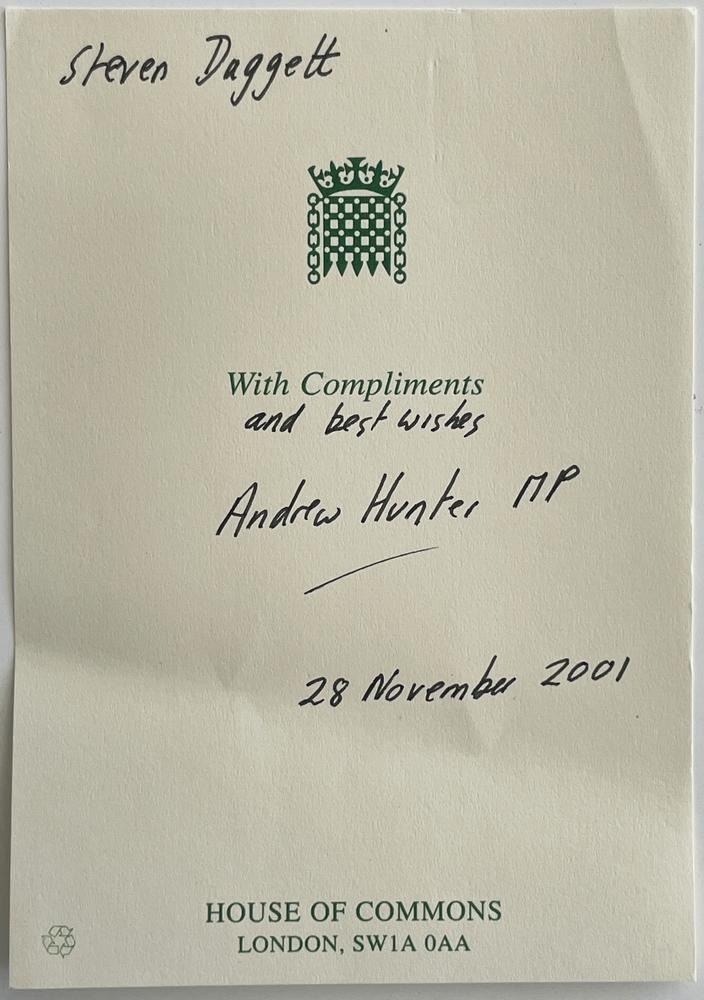 Steven Daggett
With Compliments
and best wishes
Andrew Hunter MP
28 November 2001
HOUSE OF COMMONS
LONDON, SW1A 0AA